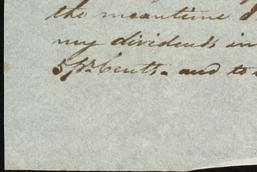 the meantime
my dividends in
5 pr. Cents. and to